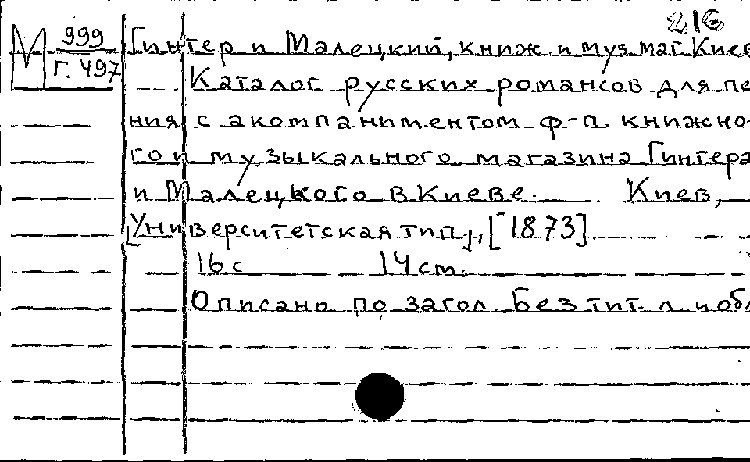 216
М 999 Гинтер и Малецкий, книж. и муз. маг. Киев
Г. 497
Каталог русских романсов для пе
ния с акомпаниментом ф-п. книжно
го и музыкального магазина Гинтера
и Малецкого в Киеве. Киев,
[Университетская тип.], [1873]
16 с 14 cm.
Описано по загол. Без тит. л и обл